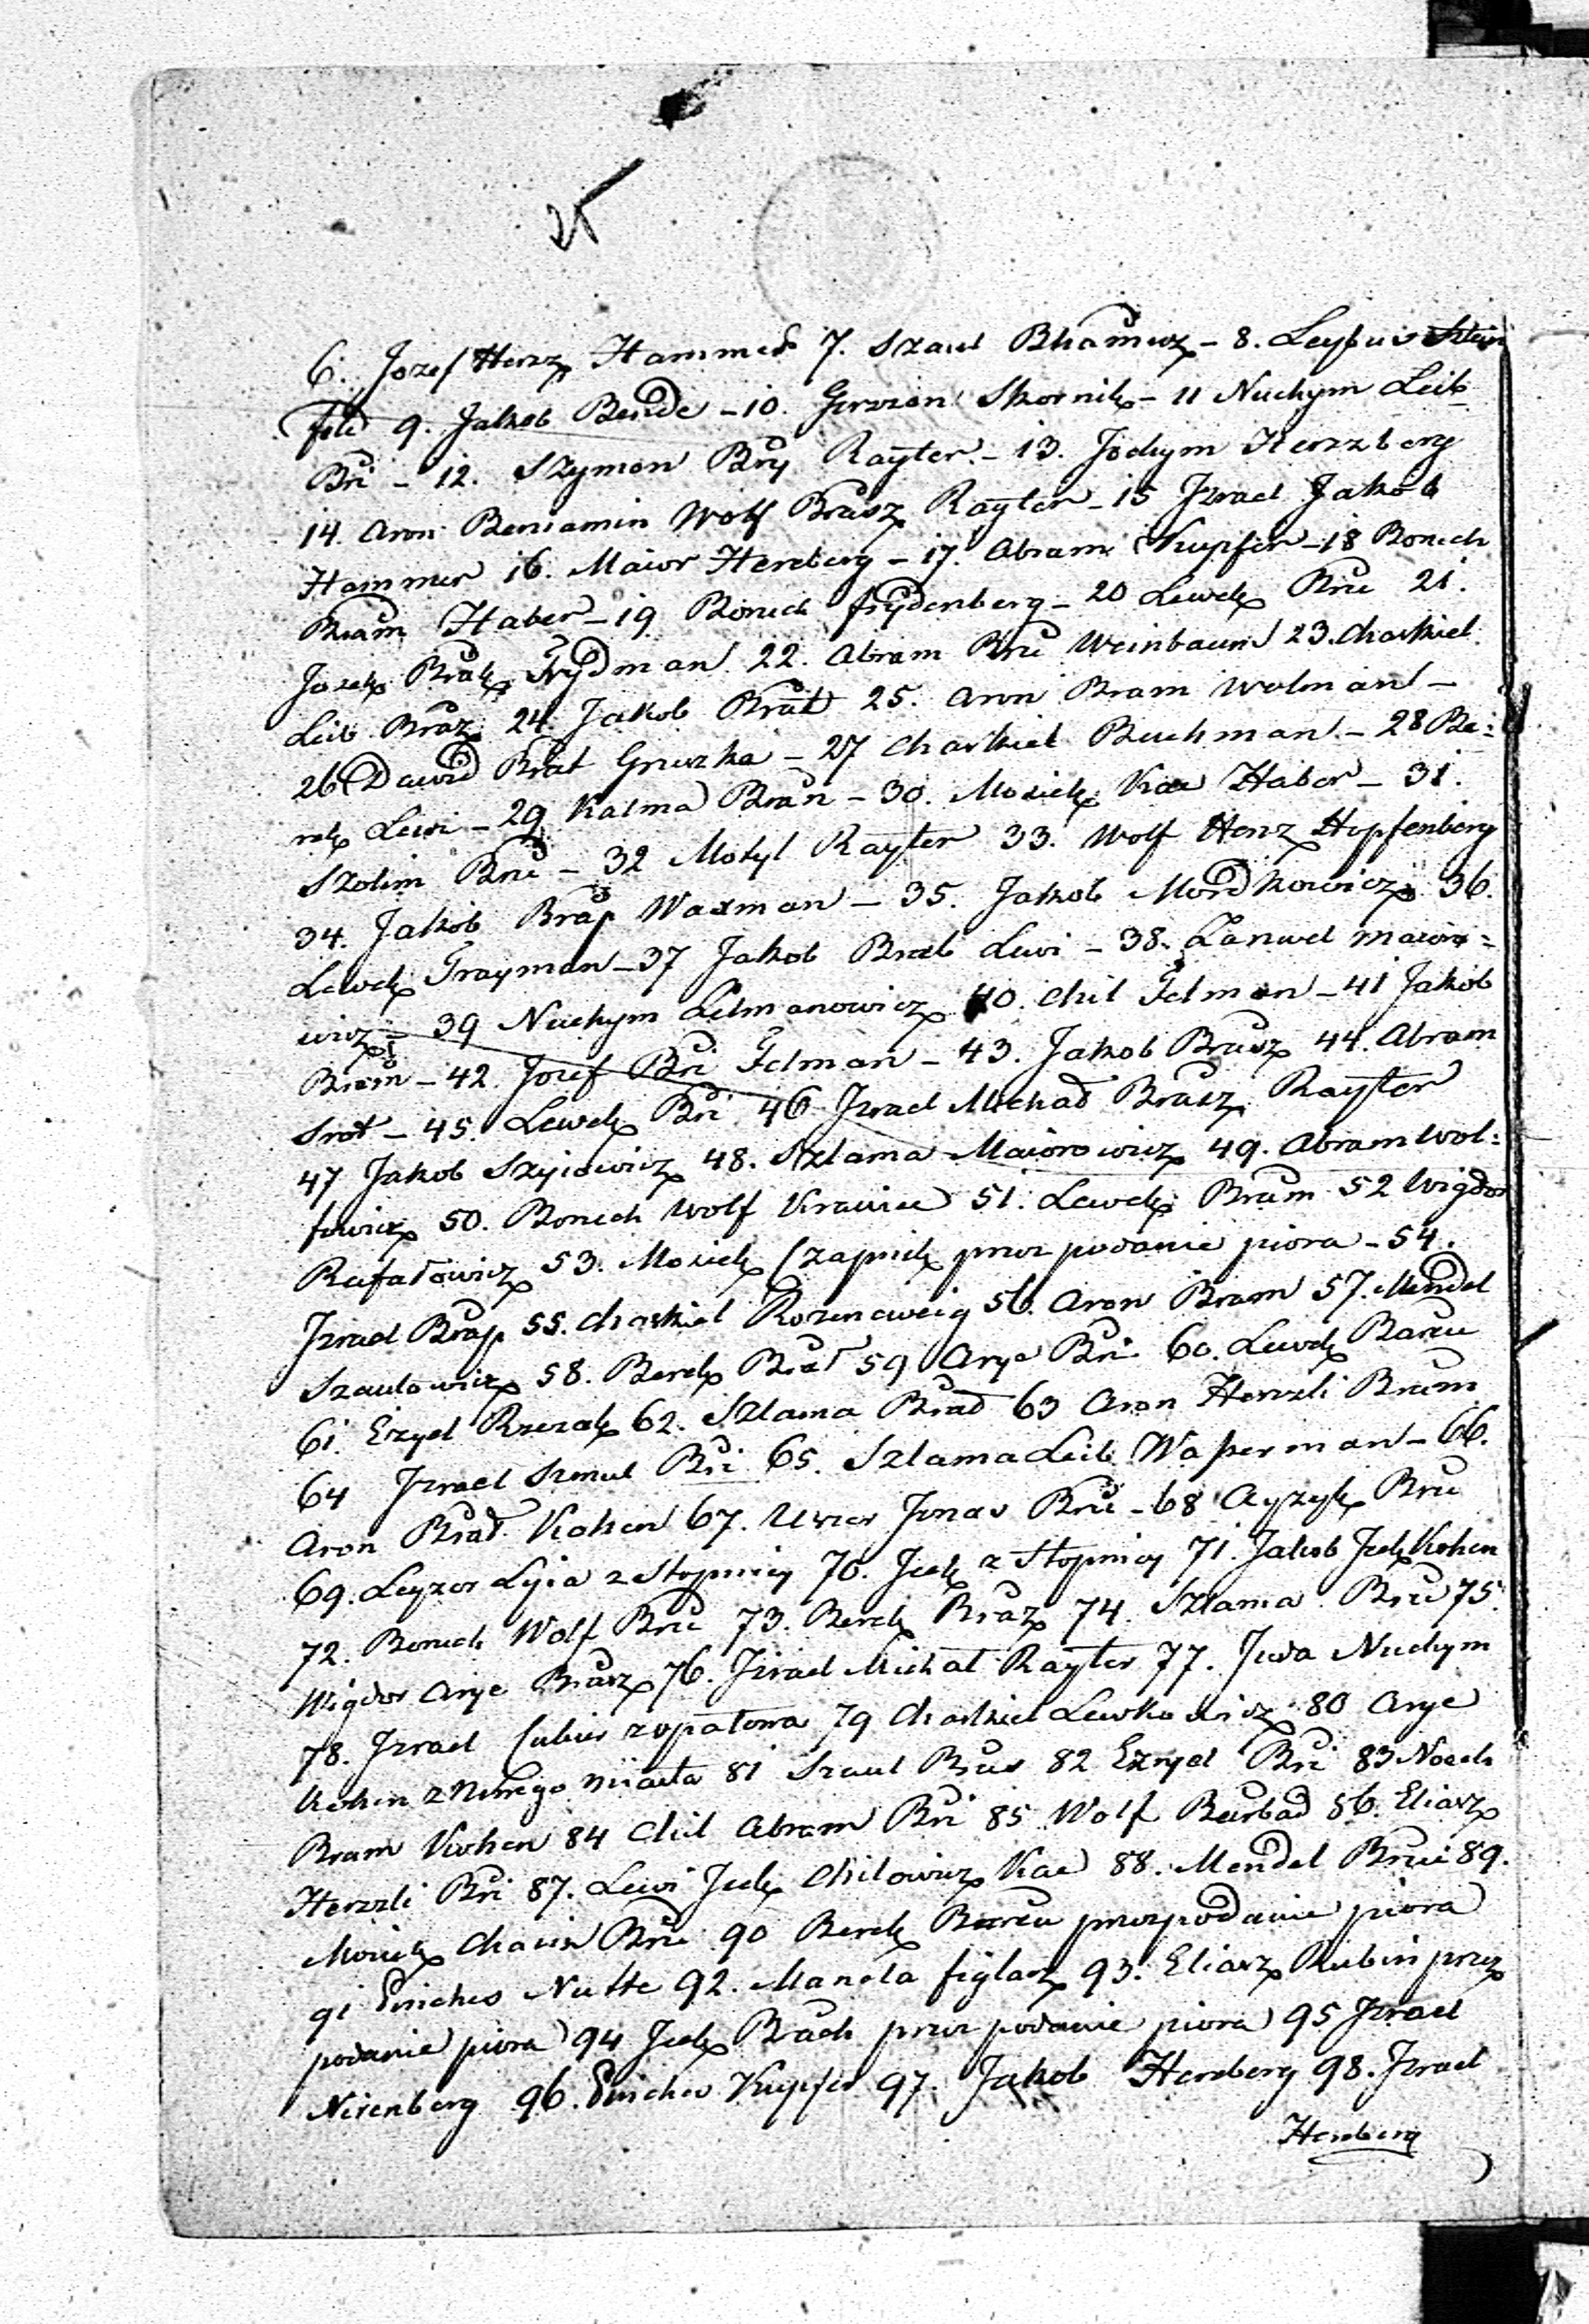 25
6. Jozef Herz Hammer 7. Szaul Bhamerz - 8. Leybuś Stein
feld 9. Jakob Bende - 10. Gerzon Skornik - 11 Nuchym Leib
Bri - 12. Szymon Bry Rayter - 13. Jochym Herzberg
14. Aron Beniamin Wolf Brasz Rayter - 15 Izrael Jakob
Hammer 16. Maior Herzberg - 17. Abram Kupfer - 18 Boruch
Bram Haber - 19 Boruch frydenberg - 20 Lewek Bru 21.
Josek Brak Frydman 22. Abram Bru Weinbaum 23. Chaskiel
Leib Braz 24. Jakob Brat 25. Aron Bram Wolman -
26 Dawid Brat Gruszka - 27 Chaskiel Buchman - 28 Be=
rek Lewi - 29 Kalma Bran - 30. Mosiek Kac Haber - 31.
Szolim Bru - 32 Motyl Rayter 33. Wolf Herz Hopfenberg
34. Jakob Brap Waxman - 35. Jakob Mordkowicz 36.
Lewek Grayman - 37 Jakob Brat Lewi - 38. Zanwel Maioro=
wicz - 39 Nuchym Zelmanowicz 40. Chil Felman - 41 Jakob
Bram - 42. Josef Bri Felman - 43. Jakob Brasz 44. Abram
Srot - 45. Lewek Bri 46 Izrael Michad Brasz Rayter
47 Jakob Szyiowicz 48. Szlama Maiorowicz 49. Abram Wol=
fowicz 50. Boruch Wolf Krawiec 51. Lewek Bram 52 Wigdor
Rafałowicz 53. Mosiek Czapnik przez podanie piora - 54.
Izrael Brap 55. Chaskiel Rozencweig 56. Aron Bram 57. Mendel
Szaulowicz 58. Berek Brat 59 Arye Bri 60. Lewek Baruu
61. Ezyel Rzezak 62. Szlama Brad 63 Aron Herzli Bram
64 Izrael Szmul Bri 65. Szlama Leib Waßerman - 66.
Aron Brat Kohen 67. Uszer Jonas Bru - 68 Ayzyk Bru
69. Leyzor Lyia z Stopnicy 70. Icek z Stopnicy 71. Jakob Icek Kohen
72. Boruch Wolf Bru 73. Berek Braz 74. Szlama Bru 75.
Wigdor Arye Brasz 76. Izrael Michał Rayter 77. Juda Nuchym
78. Izrael Cubier z opatowa 79 Chaskiel Lewkowicz 80 Arye
Kohen z Nowego miasta 81 Szaul Bras 82 Ezryel Bri 83 Noech
Bram Kohen 84 Chil Abram Bri 85 Wolf Berbad 86. Eliasz
Herzli Bri 87. Lewi Icek Chilowicz Kac 88. Mendel Bru 89.
Mosiek Chaim Bru 90 Berek Baruu przez podanie piora
91 Pinches Nutte 92. Manela figlarz 93. Eliasz Rubin przez
podanie piora 94 Icek Brach przez podanie piora 95 Izrael
Nirenberg 96. Pinches Kupfer 97. Jakob Herzberg 98. Izrael
Herzberg